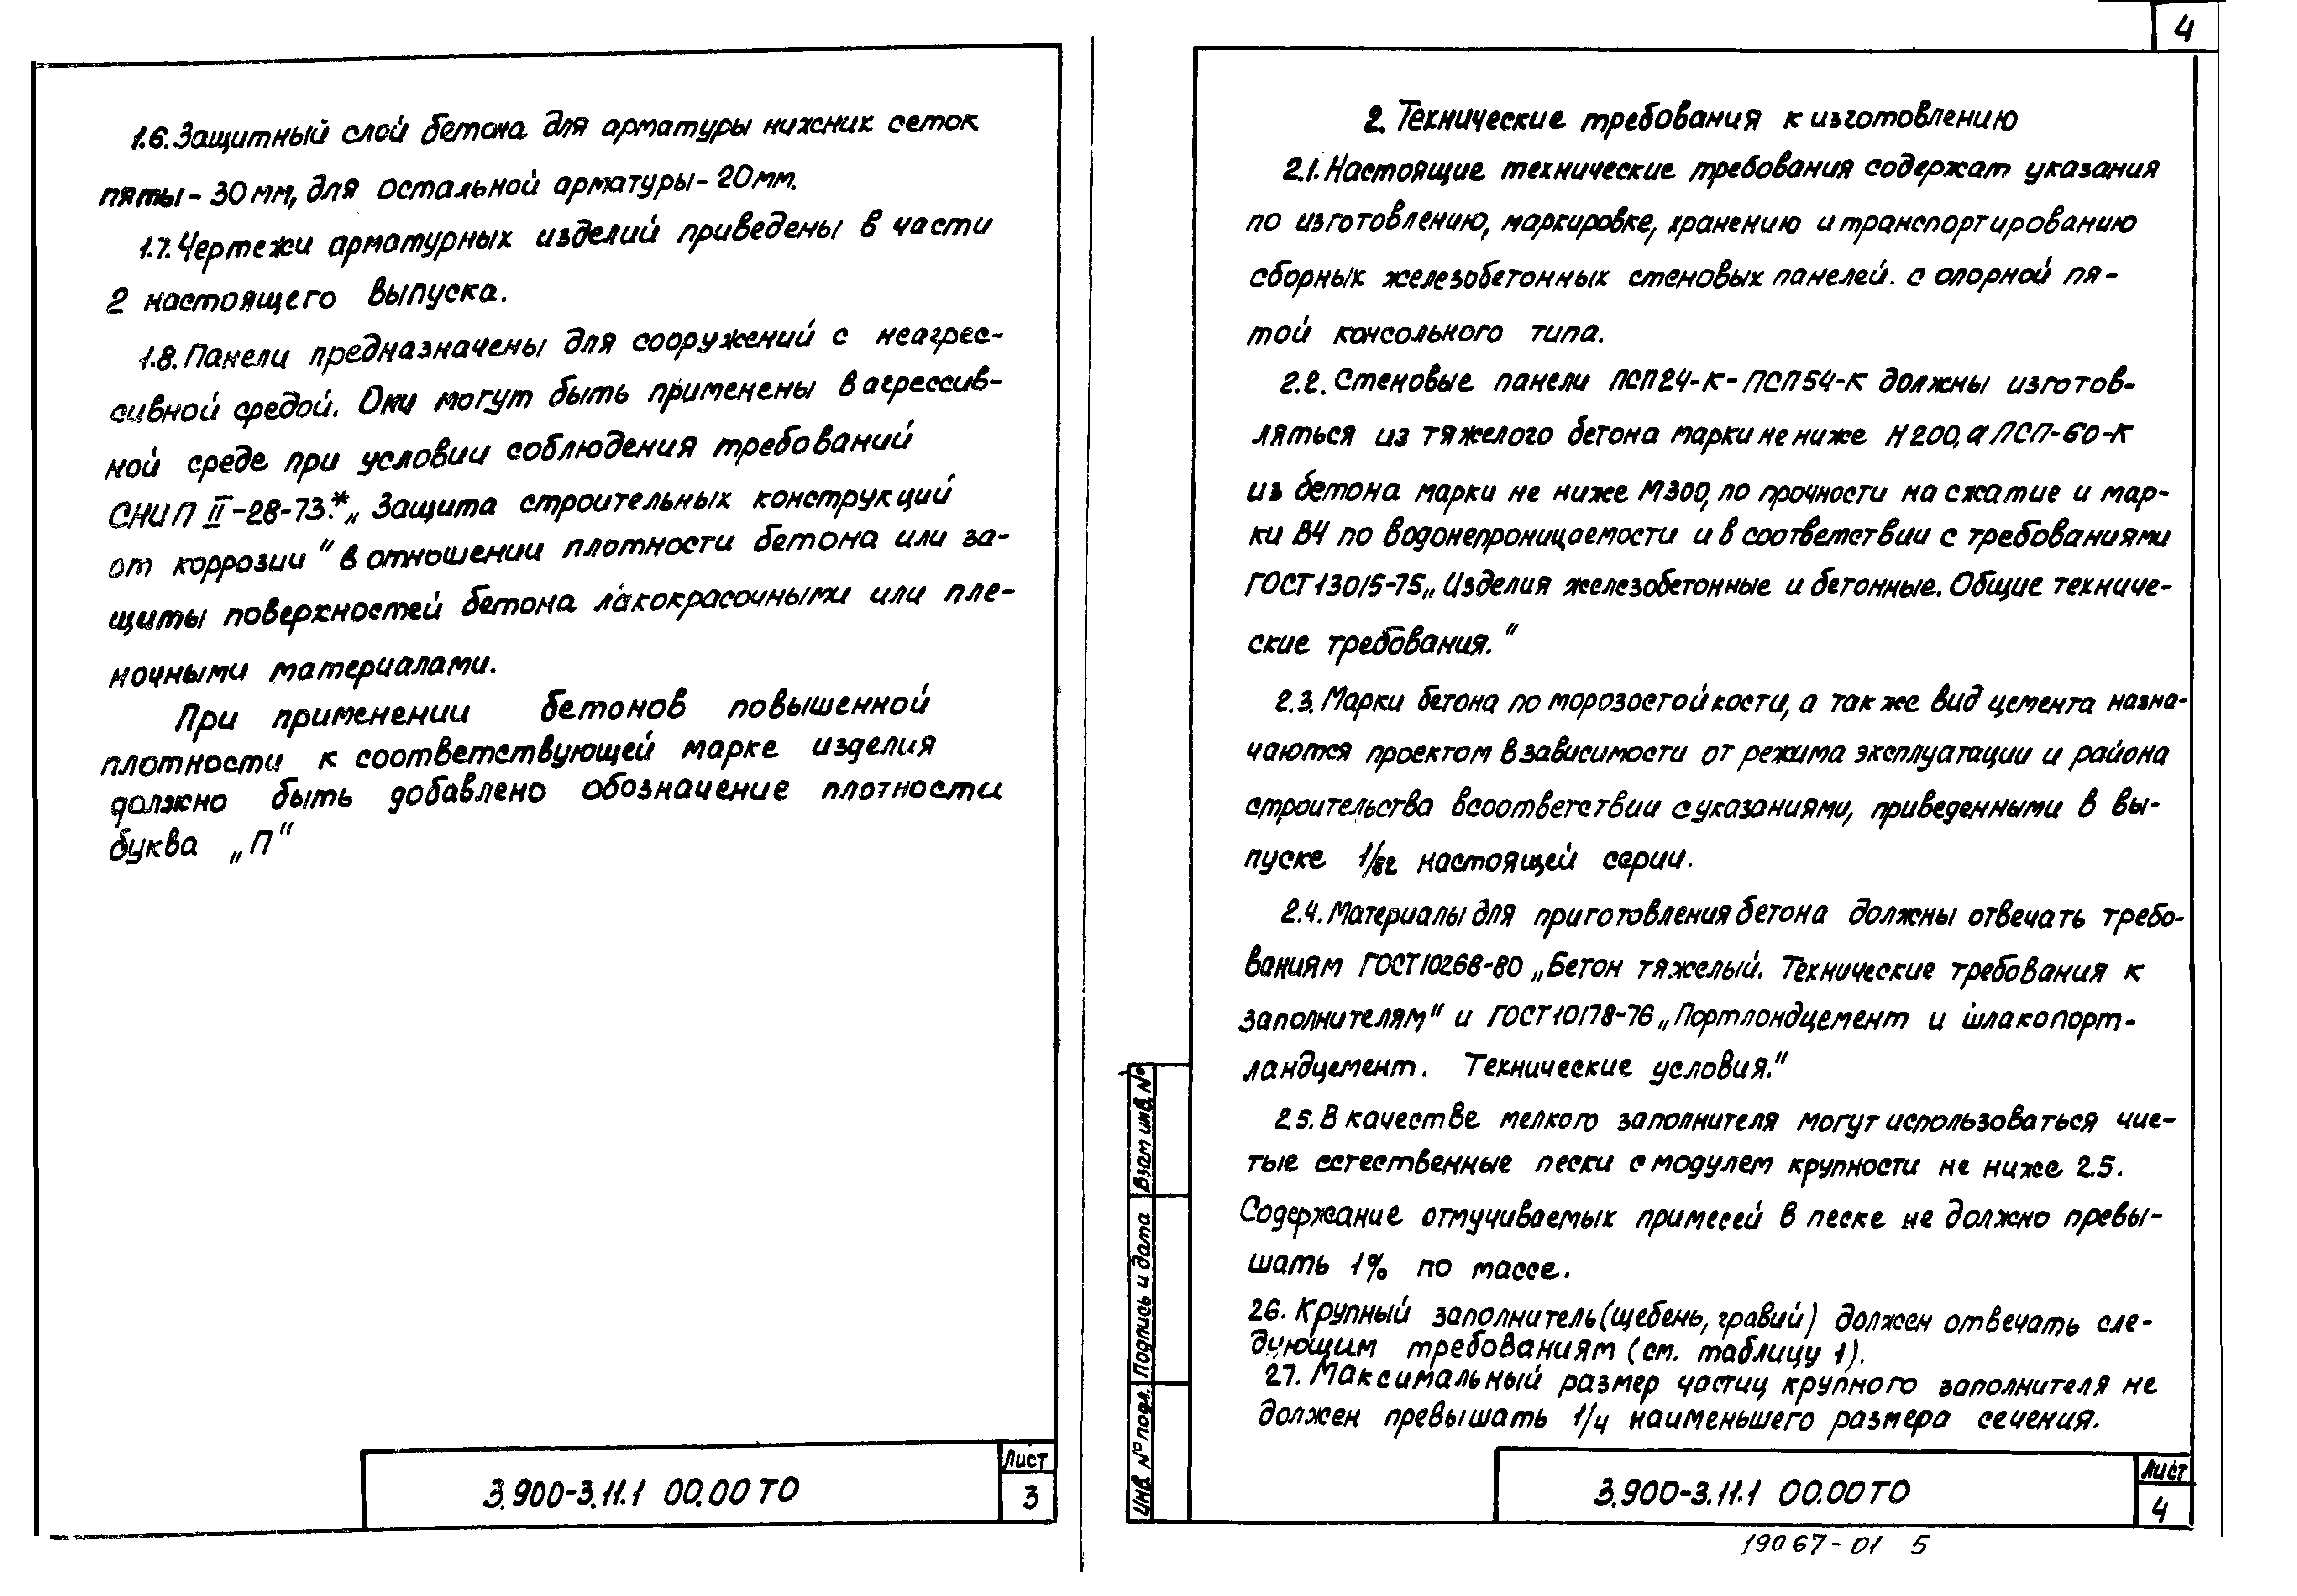 1.6. Защитный слой бетона для арматуры нижних сеток
пяты - 30 мм, для остальной арматуры - 20 мм.
1.7. Чертежи арматурных изделий приведены в части
2 настоящего выпуска.
1.8. Панели предназначены для сооружений с неагрес-
сивной средой. Они могут быть применены в агрессив-
ной среде при условии соблюдения требований
СНиП II-28-73.* „Защита строительных конструкций
от коррозии“ в отношении плотности бетона или за-
щиты поверхностей бетона лакокрасочными или пле-
ночными материалами.
При применении бетонов повышенной
плотности к соответствующей марке изделия
должно быть добавлено обозначение плотности
буква „П“
3.900-3.11.1 00.00 ТО
Лист
3
4
2. Технические требования к изготовлению
2.1. Настоящие технические требования содержат указания
по изготовлению, маркировке, хранению и транспортированию
сборных железобетонных стеновых панелей. с опорной пя-
той консольного типа.
2.2. Стеновые панели ПСП24-К-ПСП54-К должны изготов-
ляться из тяжелого бетона марки не ниже М200, а ПСП-60-К
из бетона марки не ниже М300, по прочности на сжатие и мар-
ки В4 по водонепроницаемости и в соответствии с требованиями
ГОСТ 13015-75 „Изделия железобетонные и бетонные. Общие техниче-
ские требования.“
2.3. Марки бетона по морозостойкости, а также вид цемента назна-
чаются проектом в зависимости от режима эксплуатации и района
строительства в соответствии с указаниями, приведенными в вы-
пуске 1/82 настоящей серии.
2.4. Материалы для приготовления бетона должны отвечать требо-
ваниям ГОСТ 10268-80 „Бетон тяжелый. Технические требования к
заполнителям“ и ГОСТ 10178-76 „Портландцемент и шлакопорт-
ландцемент. Технические условия.“
2.5. В качестве мелкого заполнителя могут использоваться чис-
тые естественные пески с модулем крупности не ниже 2.5.
Содержание отмучиваемых примесей в песке не должно превы-
шать 1% по массе.
26. Крупный заполнитель (щебень, гравий) должен отвечать сле-
дующим требованиям (см. таблицу 1).
27. Максимальный размер частиц крупного заполнителя не
должен превышать 1/4 наименьшего размера сечения.
Взам инв. №
Подпись и дата
Инв. № подл.
3.900-3.11.1 00.00 ТО
Лист
4
19067-01 5